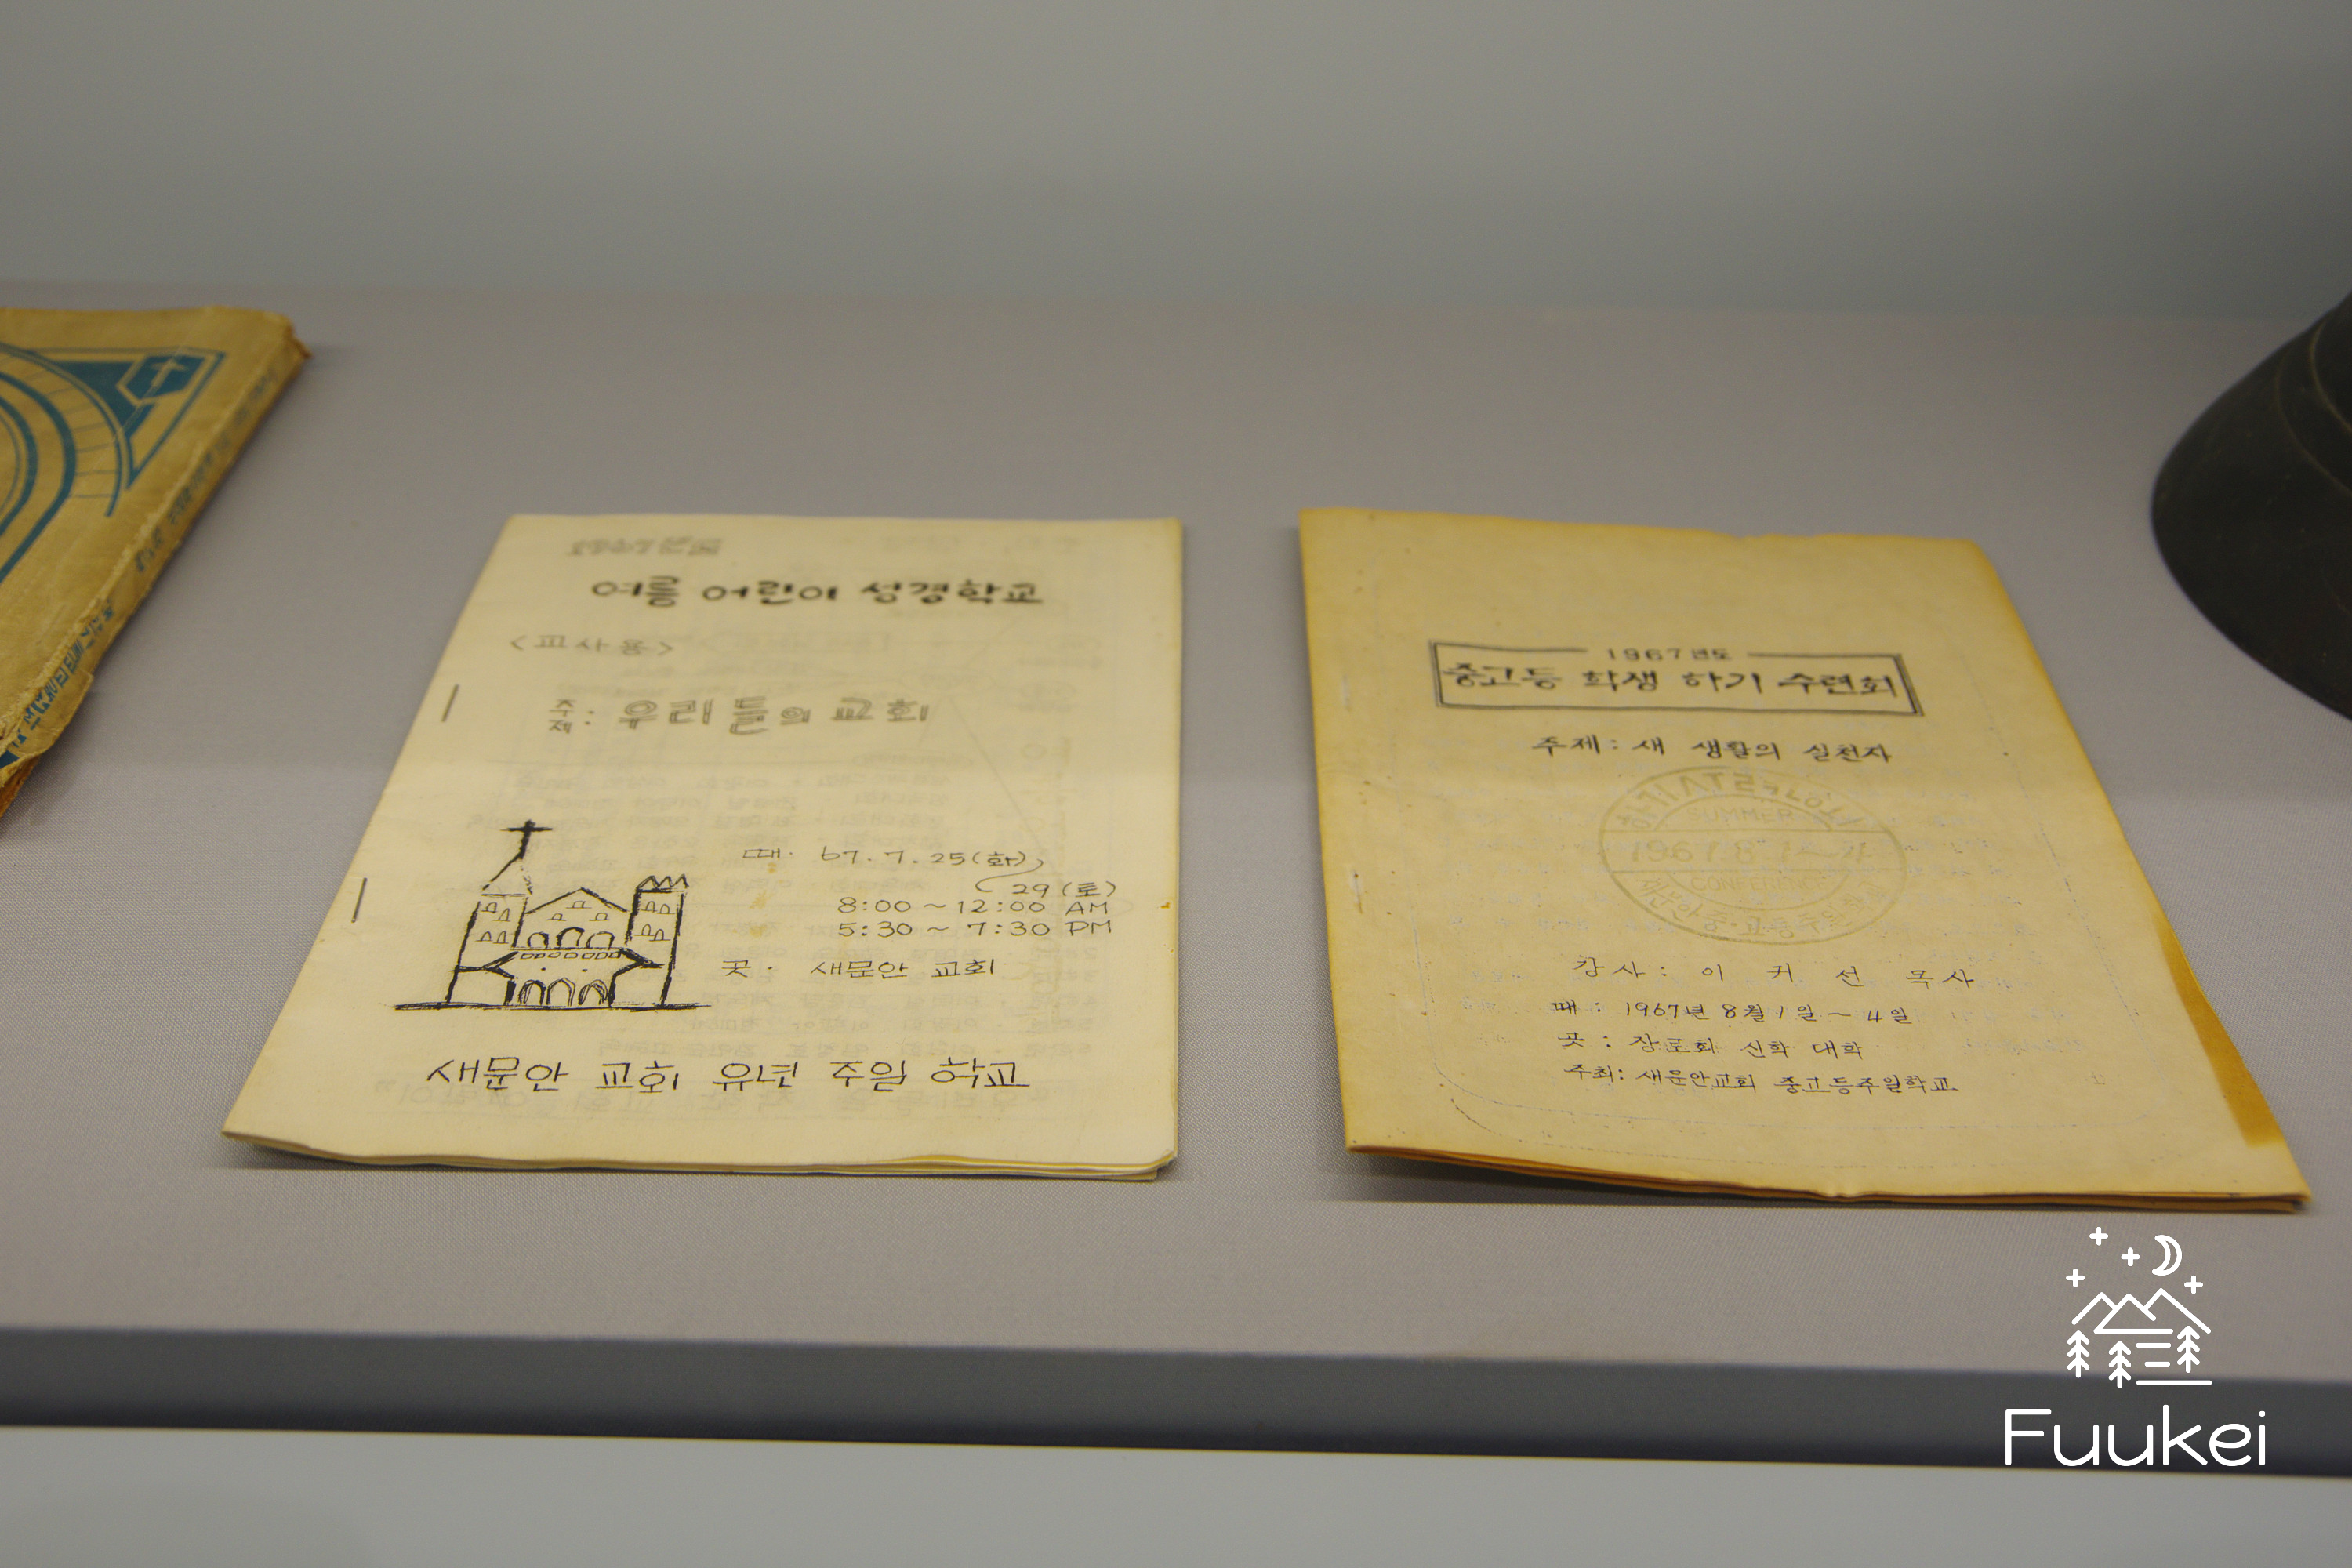 1967년도
여름 어린이 성경학교
<교사용>
주제: 우리들의 교회
때. 67. 7. 25(화)
29(토)
8:00 ~ 12:00 AM
5:30 ~ 7:30 PM
곳. 새문안 교회
새문안 교회 유년 주일 학교
1967년도
중고등 학생 하기 수련회
주제: 새 생활의 실천자
SUMMER
1967 8 1~4
CONFERENCE
강사: 이 커 선 목사
때: 1967년 8월 1일 ~ 4일
곳: 장로회 신학 대학
주최: 새문안교회 중고등주일학교
Fuukei